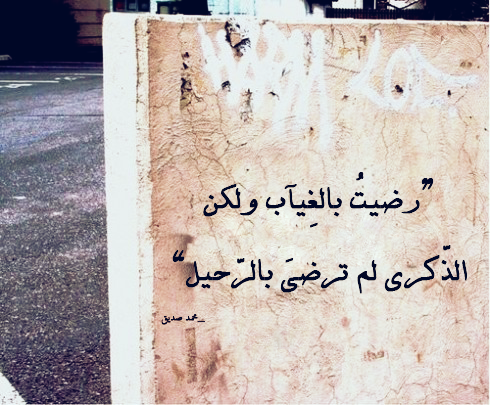 ”رضيتُ بالغِيآب ولكن
الذّكرى لم ترضىَ بالرّحيل“
_محمد صديق